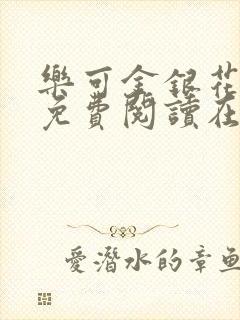 樂可金銀花
免費閱讀在
愛潛水的章魚